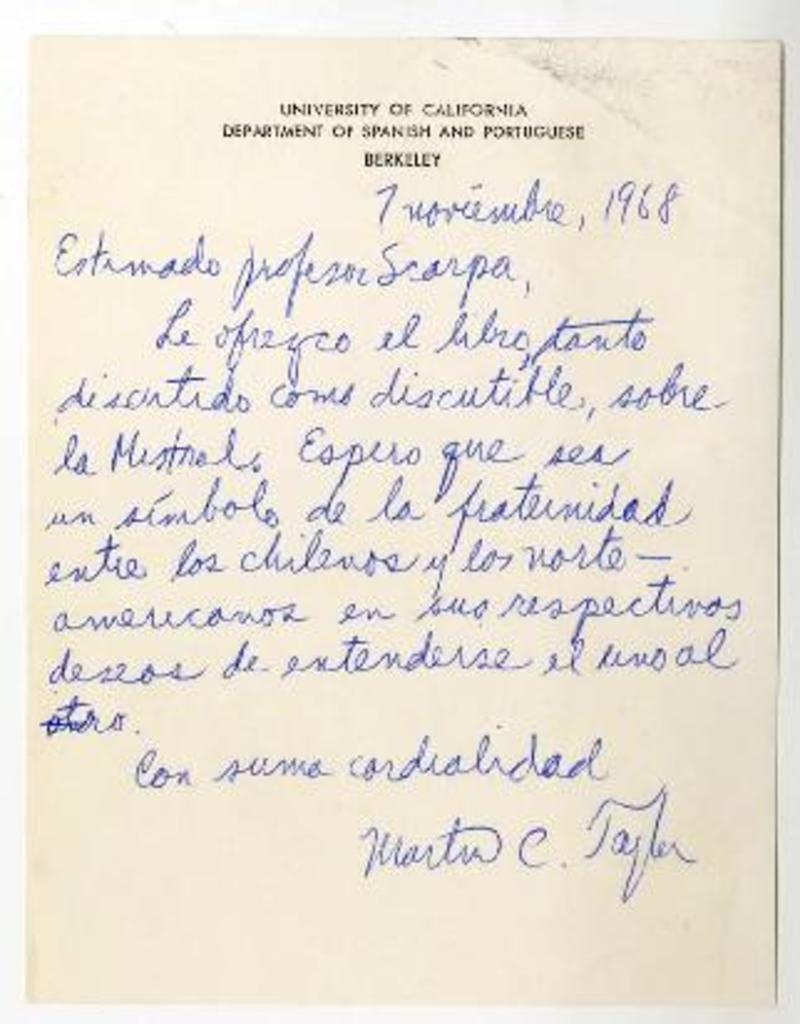 UNIVERSITY OF CALIFORNIA
DEPARTMENT OF SPANISH AND PORTUGUESE
BERKELEY
7 noviembre, 1968
Estimado profesor Scarpa,
Le ofrezco el libro, tanto
discutido como discutible, sobre
la Mistral. Espero que sea
un símbolo de la fraternidad
entre los chilenos y los norte—
americanos en sus respectivos
deseos de entenderse el uno al
otro.
Con suma cordialidad
Martin C. Taylor